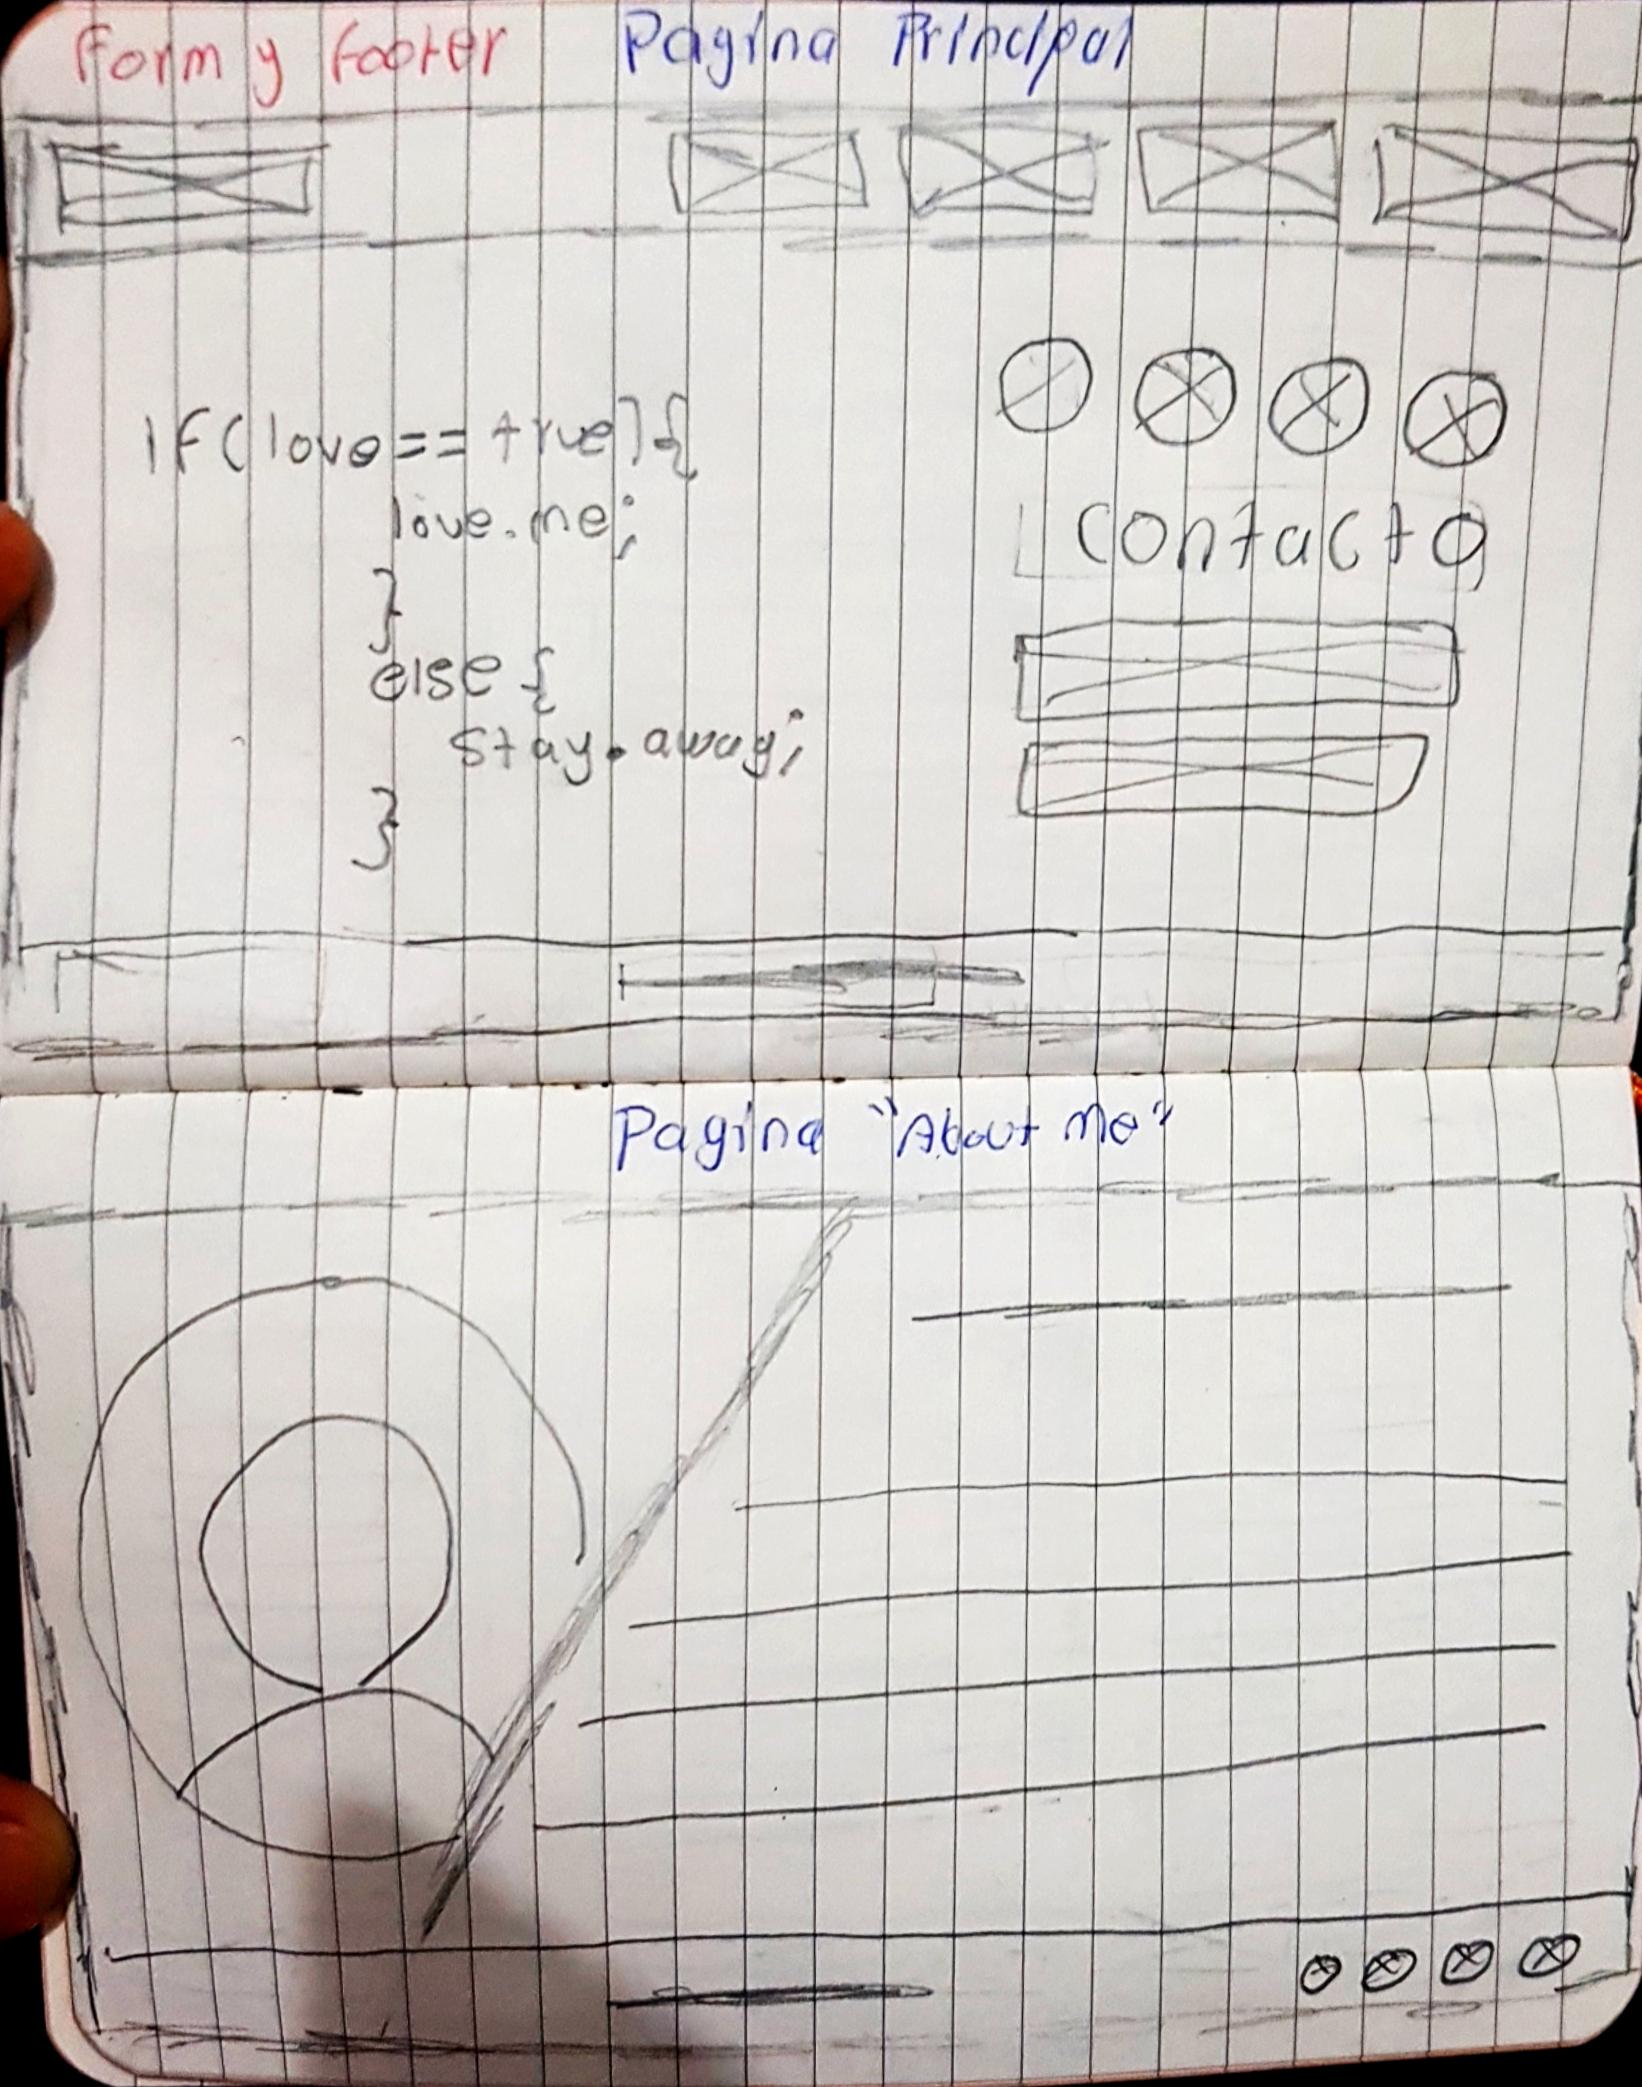 Form y footer Pagina Principal
if(love == true){
love.me;
}
else {
stay.away;
}
contacto
Pagina "About me"